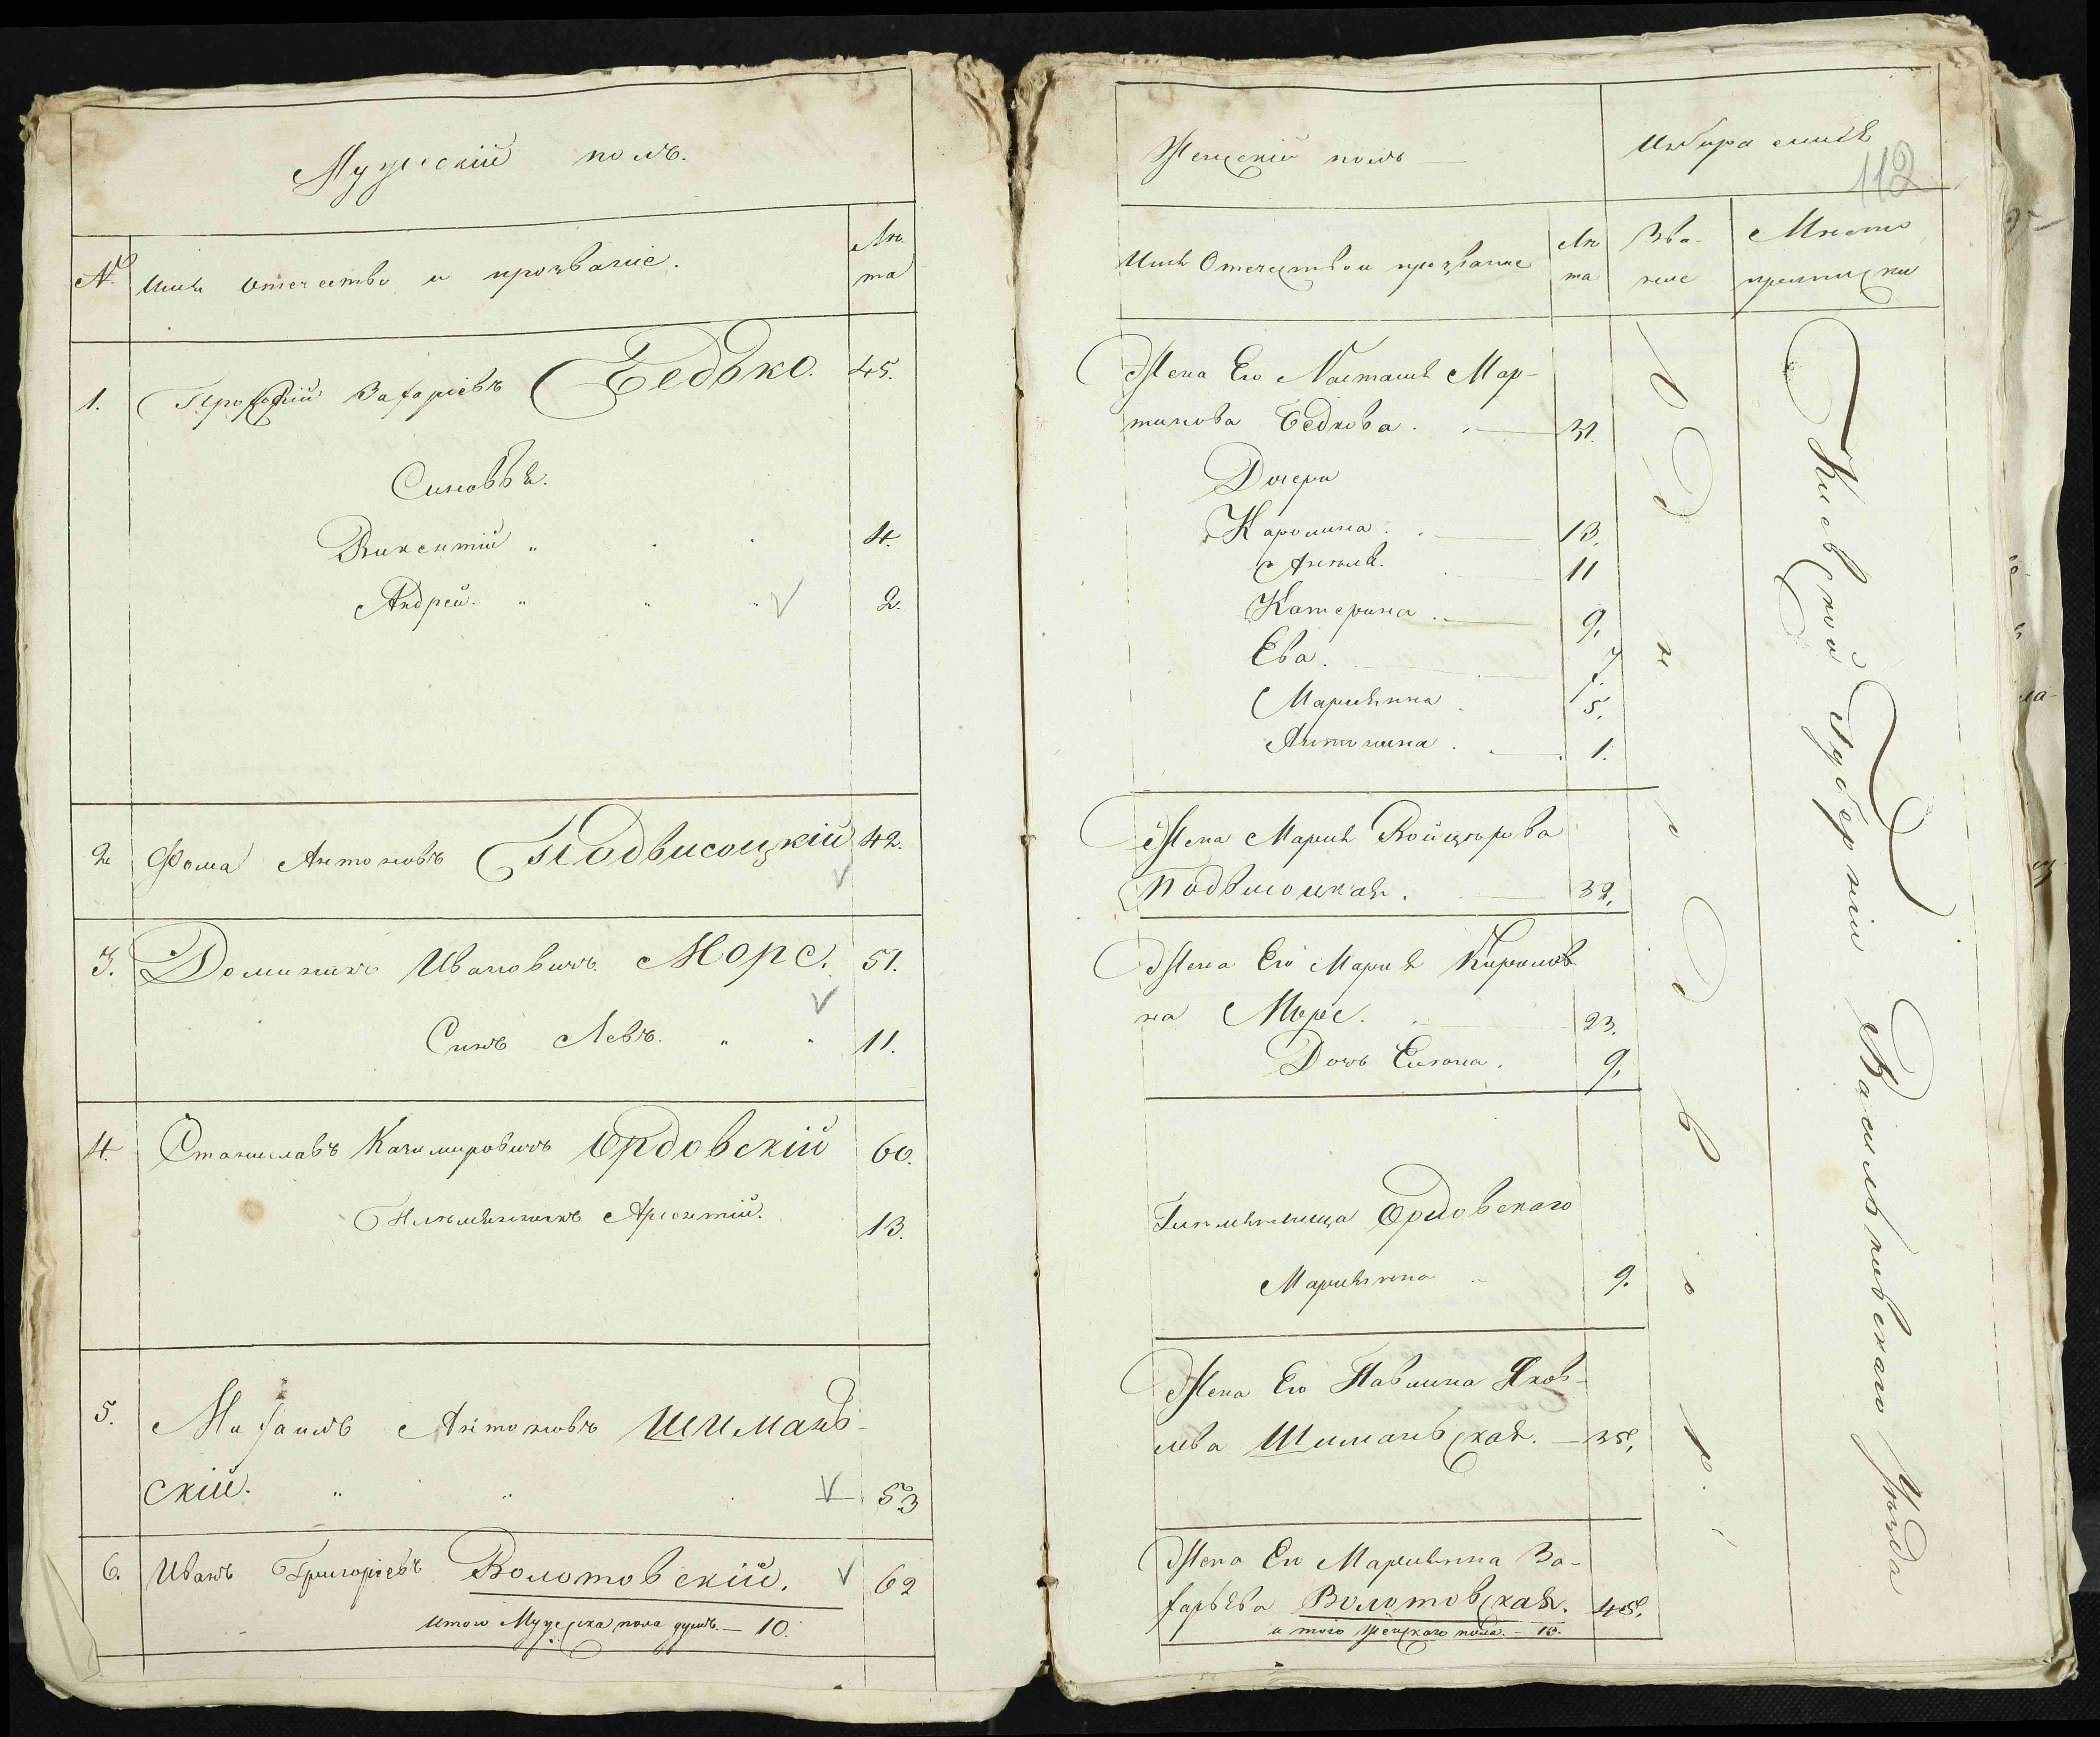 Мужескій полъ.
№ Имя Отечество и прозваніе. Лѣ-
та
1. Прокофій Захаріевъ Бедько. 45.
Синовья.
Викентій „ 4.
Андрей. „ „ „ 2.
2 Фома Антоновъ Подвисоцкій 42.
3. Доминикъ Ивановичъ Морс. 51.
Синъ Левъ. „ „ 11.
4. Станиславъ Казимировичъ Ордовскій 60.
Племянникъ Арсентій. 13.
5. Михаилъ Антоновъ Шимань-
скій. „ „ 53
6. Иванъ Григоріевъ Волотовскій. 62
Итого Мужеска пола душъ. — 10.
Женскій полъ —
112
Имя Отечество и прозваніе Лѣ
та
Зва-
ніе
Мѣсто
приписки
Жена Его Настасія Мар-
тинова Бедкова. 31.
Дочери
Каролина. 13.
Анеля. 11
Катерина. 9.
Ева. 7.
Маріянна 5.
Антонина. 1.
Жена Марія Войцехова
Подвисоцкая. 32.
Жена Его Марія Кирилов-
на Морс. 23.
Дочь Елена. 9.
Племянница Ордовскаго
Маріянна 9.
Жена Его Павлина Яков-
лева Шиманьская. — 35.
Жена Его Маріянна За-
харьева Волотовская. 45.
итого женскаго пола. — 13.
Киевской Губерніи Васильковскаго Уѣзда